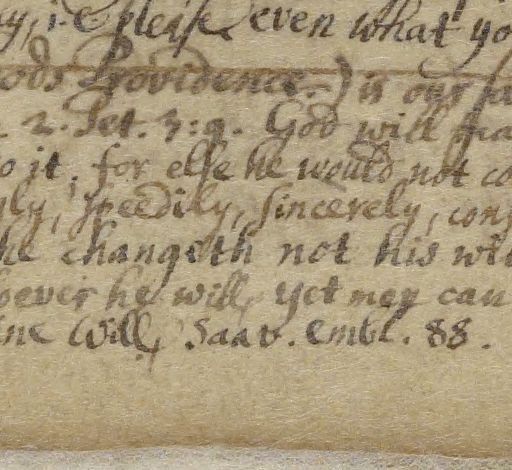 y, i.e. please even what yo
ods Providence.) is our
. 2. Pet. 3:9. God will
o it, for else he would not co
ly, speedily, sincerely, cons
he changeth not his wil
oever he will, yet men can
ine Will, Saav. Embl. 88.